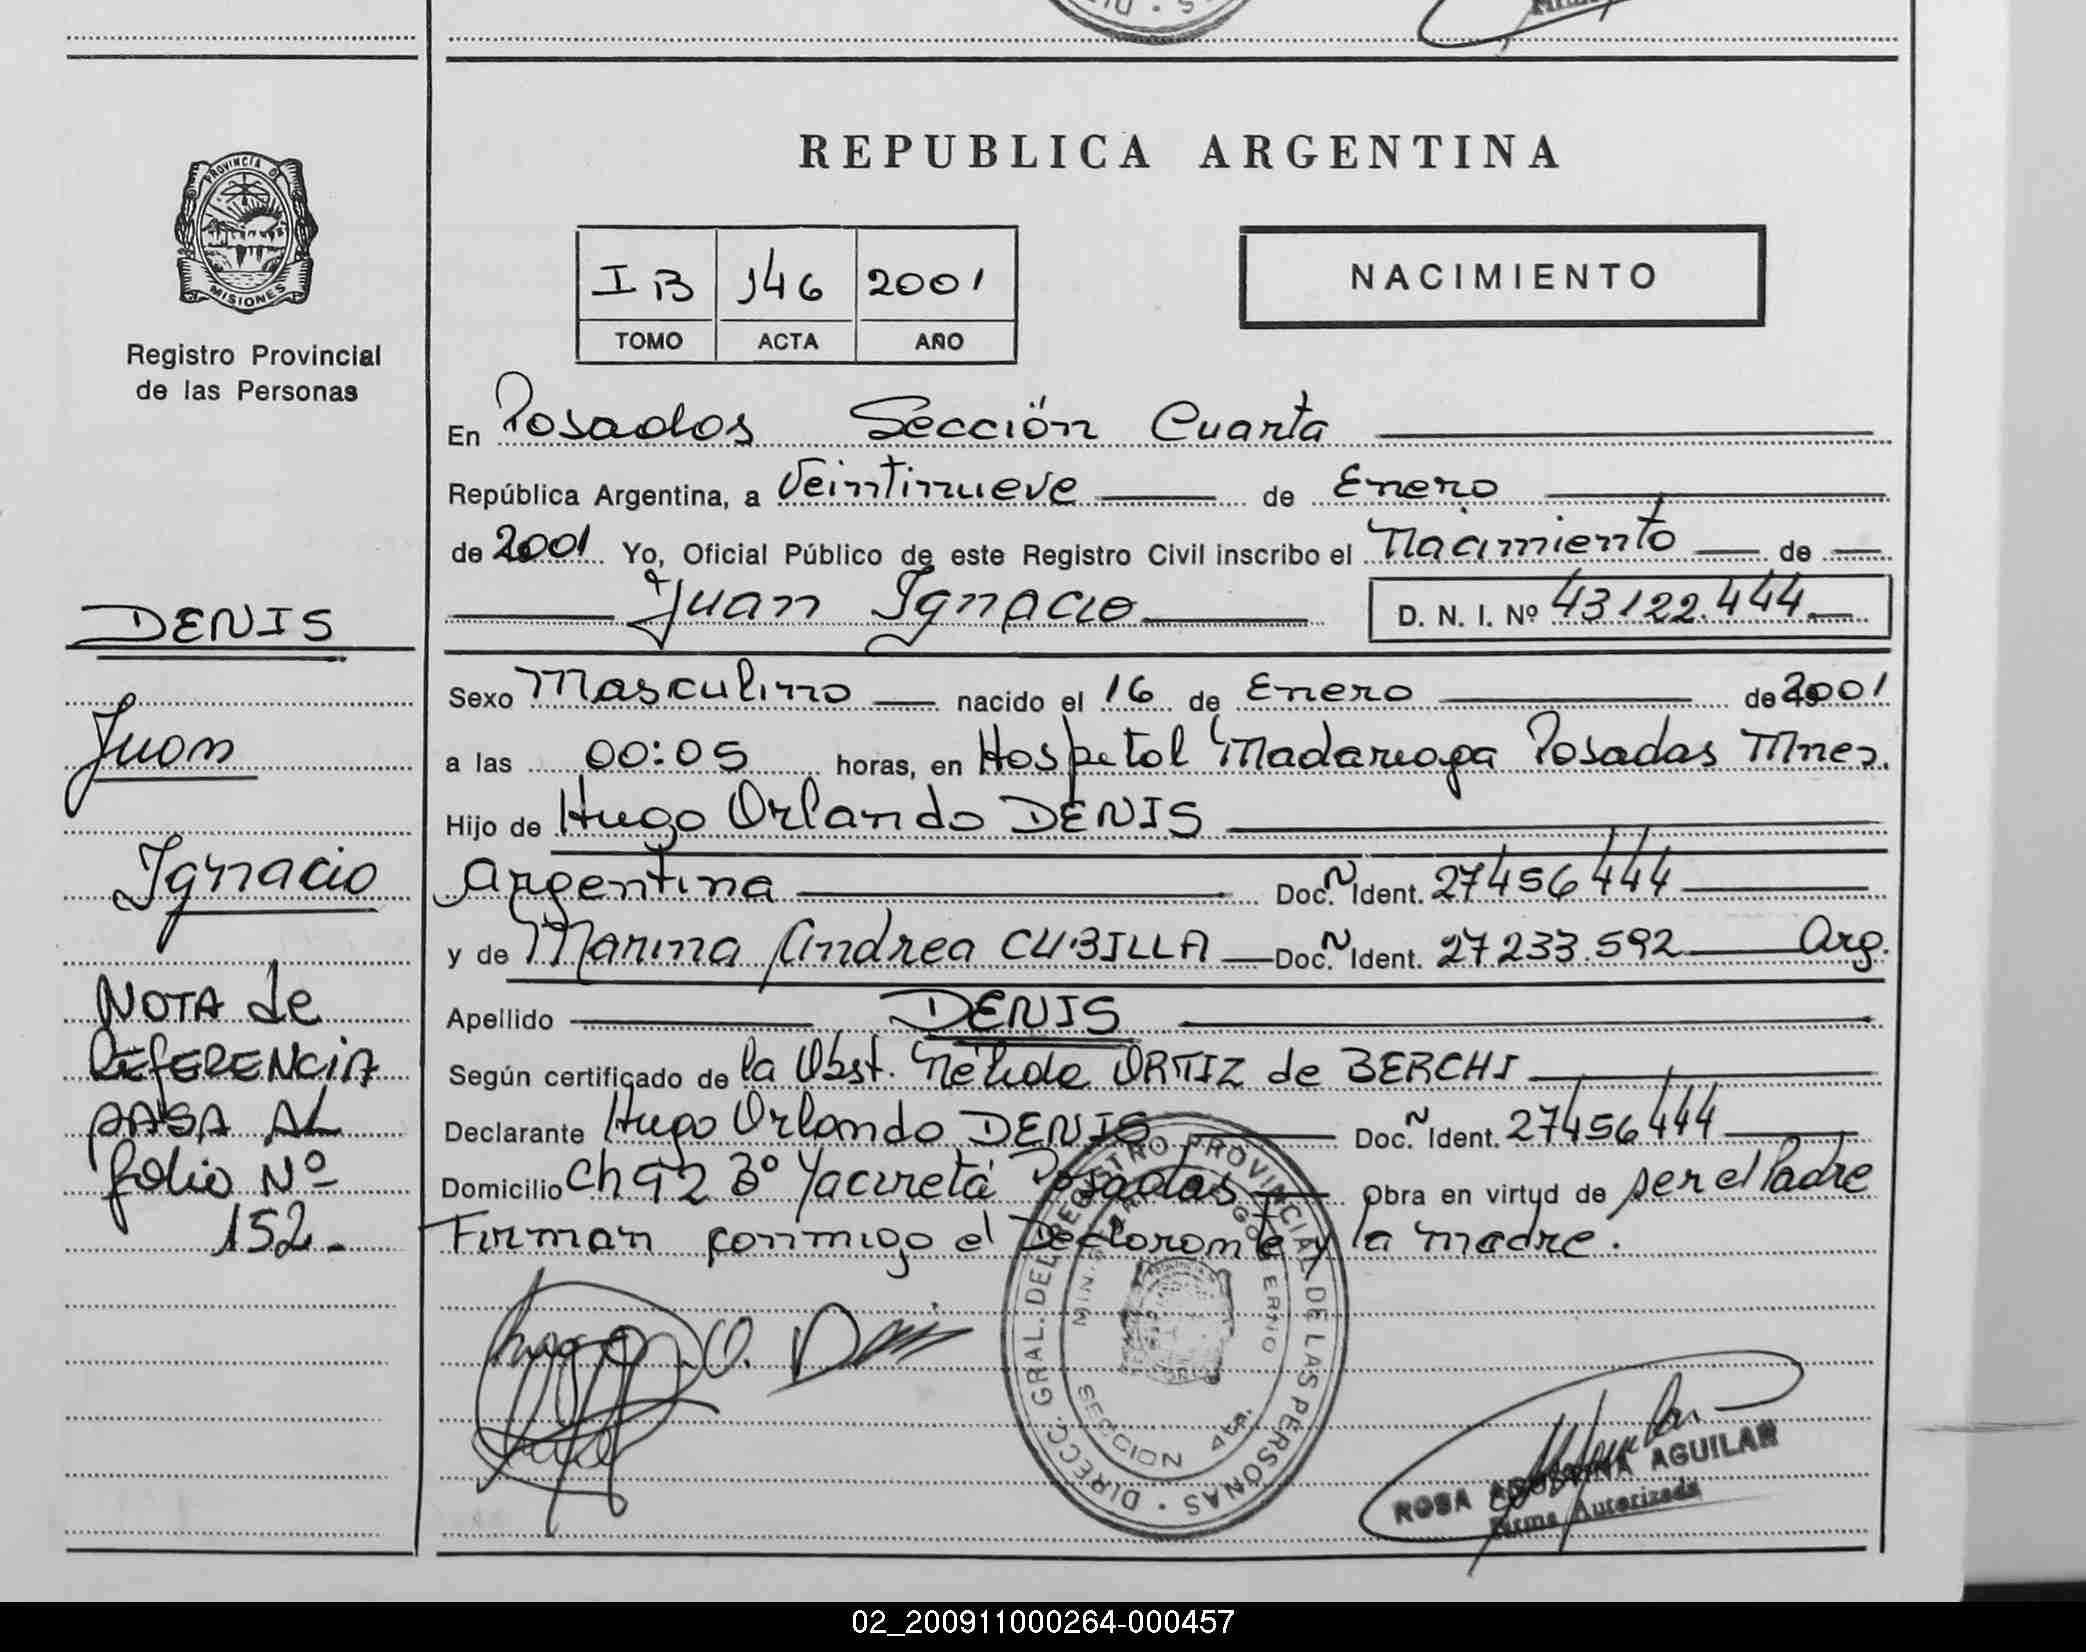 REPUBLICA ARGENTINA
PROVINCIA DE MISIONES
Registro Provincial
de las Personas
I B 146 2001
TOMO ACTA AÑO
NACIMIENTO
En Posadas Sección Cuarta
República Argentina, a Veintinueve de Enero
de 2001 Yo, Oficial Público de este Registro Civil inscribo el Nacimiento de
Juan Ignacio D. N. I. Nº 43122.444
Sexo Masculino nacido el 16 de Enero de 2001
a las 00:05 horas, en Hospital Madariaga Posadas Mnes.
Hijo de Hugo Orlando DENIS
Argentina Doc. Ñ Ident. 27456444
y de Marina Andrea CUBILLA Doc. Ñ Ident. 27233.592 Arg.
Apellido DENIS
Según certificado de la Obst. Nélida ORTIZ de BERCHI
Declarante Hugo Orlando DENIS Doc. Ñ Ident. 27456444
Domicilio Ch 92 Bº Yacyretá Posadas Obra en virtud de ser el Padre
Firman conmigo el Declarante y la madre.
DENIS
Juan
Ignacio
NOTA de
REFERENCIA
PASA AL
folio Nº
152.-
Hugo O. Denis
DIRECC. GRAL. DEL REGISTRO PROVINCIAL DE LAS PERSONAS
SECCION 4ta.
ROSA AGUSTINA AGUILAR
Firma Autorizada
02_200911000264-000457